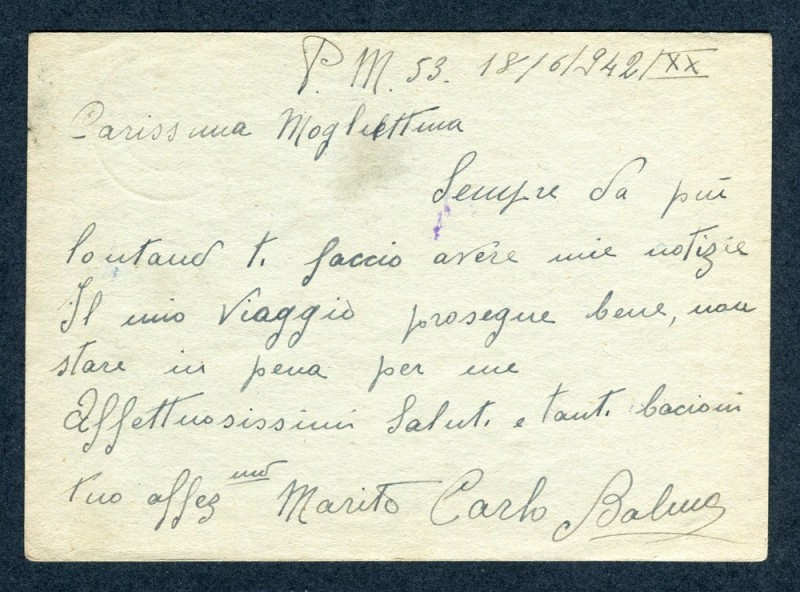 P. M. 53. 18/6/942/XX
Carissima Mogliettina
Sempre da più
lontano ti faccio avere mie notizie
Il mio viaggio prosegue bene, non
stare in pena per me
Affettuosissimi Saluti e tanti bacioni
tuo affez mo Marito Carlo Balma